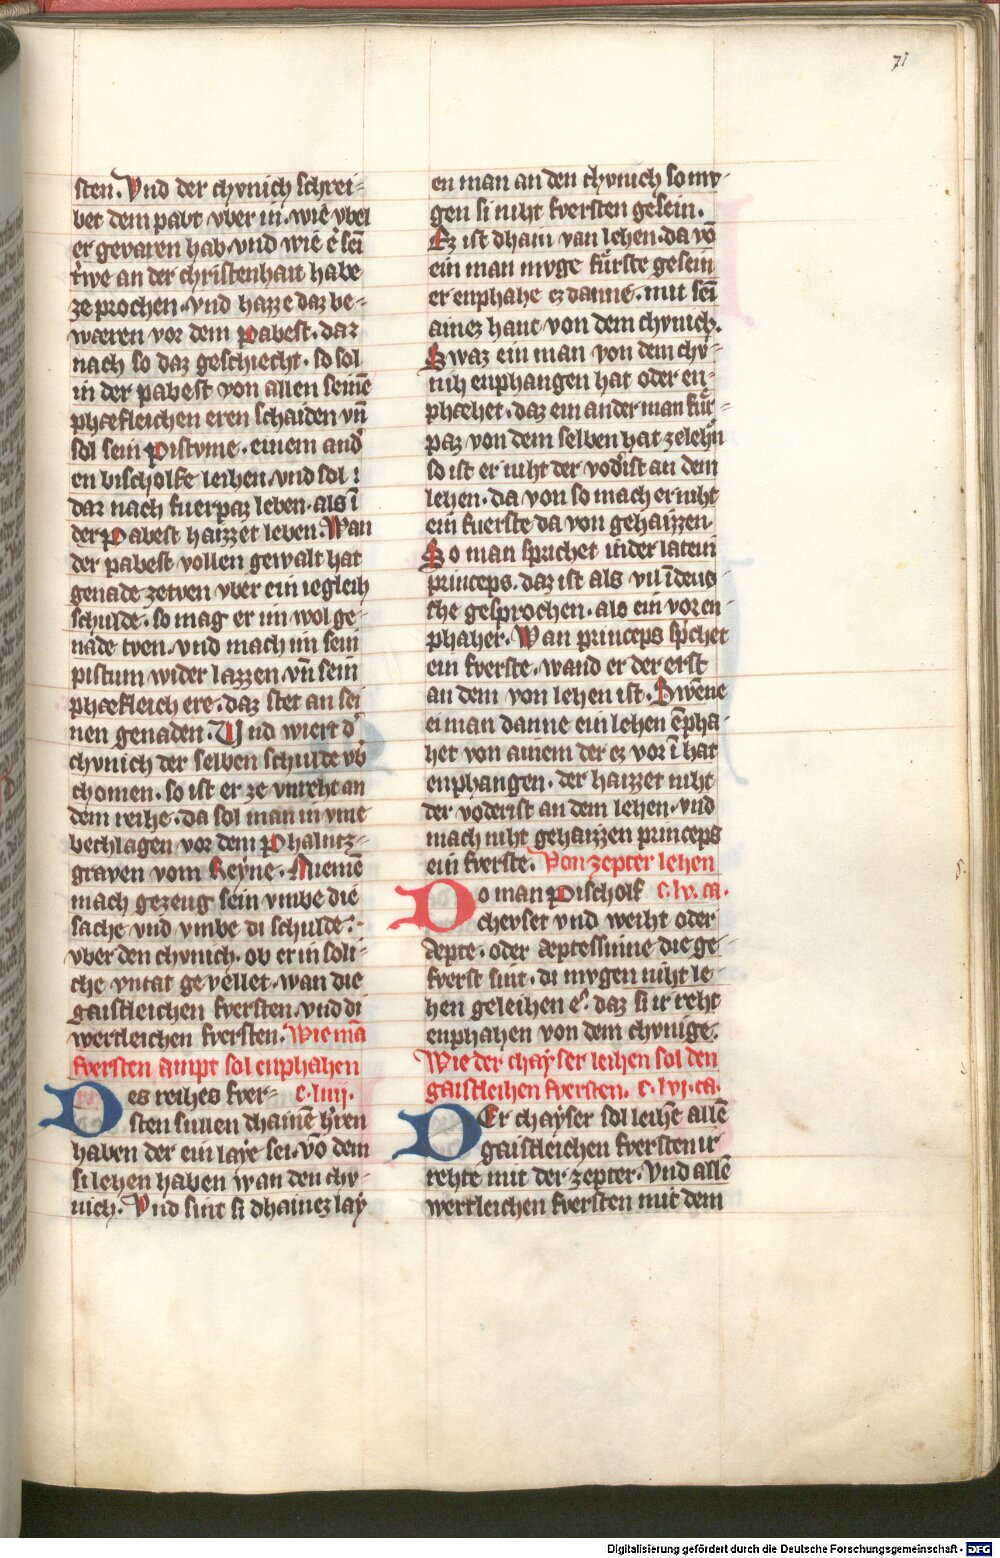 71
sten. Vnd der chvnich schrei-
bet dem pabt vber in. wie vbel
er gevaren hab. vnd wie er sei
trwe an der christenhait habe
ze prochen. vnd hazze daz be-
waeren vor dem Pabest. dar
nach so daz geschiecht. so sol
in der pabest von allen seinē
phæfleichen eren schaiden vn̄
sol sein Pistvme. einem and
en bischolfe leihen. vnd sol
dar nach fuerpaz leben. als ī
der Pabest haizzet leben. Wan
der pabest vollen gewalt hat
genade zetven vber ein iegleih
schulde. so mag er im wol ge-
nade tven. vnd mach im sein
pistum wider lazzen vn̄ sein
phæfleich ere. daz stet an sei
nen genaden. Und wiert d
chvnich der selben schulde vb
chomen. so ist er ze vnreht an
dem reihe. da sol man in vme
bechlagen vor dem Phalntz-
graven vom Reyne. Niemē
mach gezeug sein vmbe die
sache vnd vmbe di schulde.
vber den chvnich. ob er in soli-
che vntat gevellet. wan die
gaistleichen fversten. vnd di
wertleichen fversten. Wie mā
fversten ampt sol enphahen
Des reihes fver- c. liiij.
sten sullen dhainē h'ren
haben der ein laye sei. vō dem
si lehen haben wan den chv-
nich. Vnd sint si dhainez lay
en man an den chvnich so mv-
gen si niht fversten gesein.
Ez ist dhain van lehen. da vō
ein man mvge fürste gesein
er enphahe ez danne. mit sei
ainez hant von dem chvnich.
Swaz ein man von dem chv-
nih enphangen hat oder en-
phæhet. daz ein ander man für-
paz von dem selben hat zelehn
so ist er niht der vodist an dem
lehen. da von so mach er niht
ein fuerste da von gehaizzen.
So man sprichet in der latein
princeps. daz ist als vil in deus-
che gesprochen. als ein vor en-
phaher. Wan princeps sp'chet
ein fverste. wand er der erst
an dem von lehen ist. Swēne
ei man danne ein lehen ēpha-
het von ainem der ez vor ī hat
enphangen. der haizzet niht
der voderist an dem lehen. vnd
mach niht gehaizzen princeps
ein fverste. Von zepter lehen
Do man Pischolf c. lv. ca.
chevset vnd weiht oder
æpte. oder æptessinne die ge-
fverst sint. di mvgen niht le-
hen geleihen e. daz si ir reht
enphahen von dem chvnige.
Wie der chayser leihen sol den
gaistleihen fversten. c. lvj. ca.
DEr chayser sol leihē allē
gaistleichen fversten ir
rehte mit der zepter. Vnd allē
wertleichen fversten mit dem
Digitalisierung gefördert durch die Deutsche Forschungsgemeinschaft - DFG